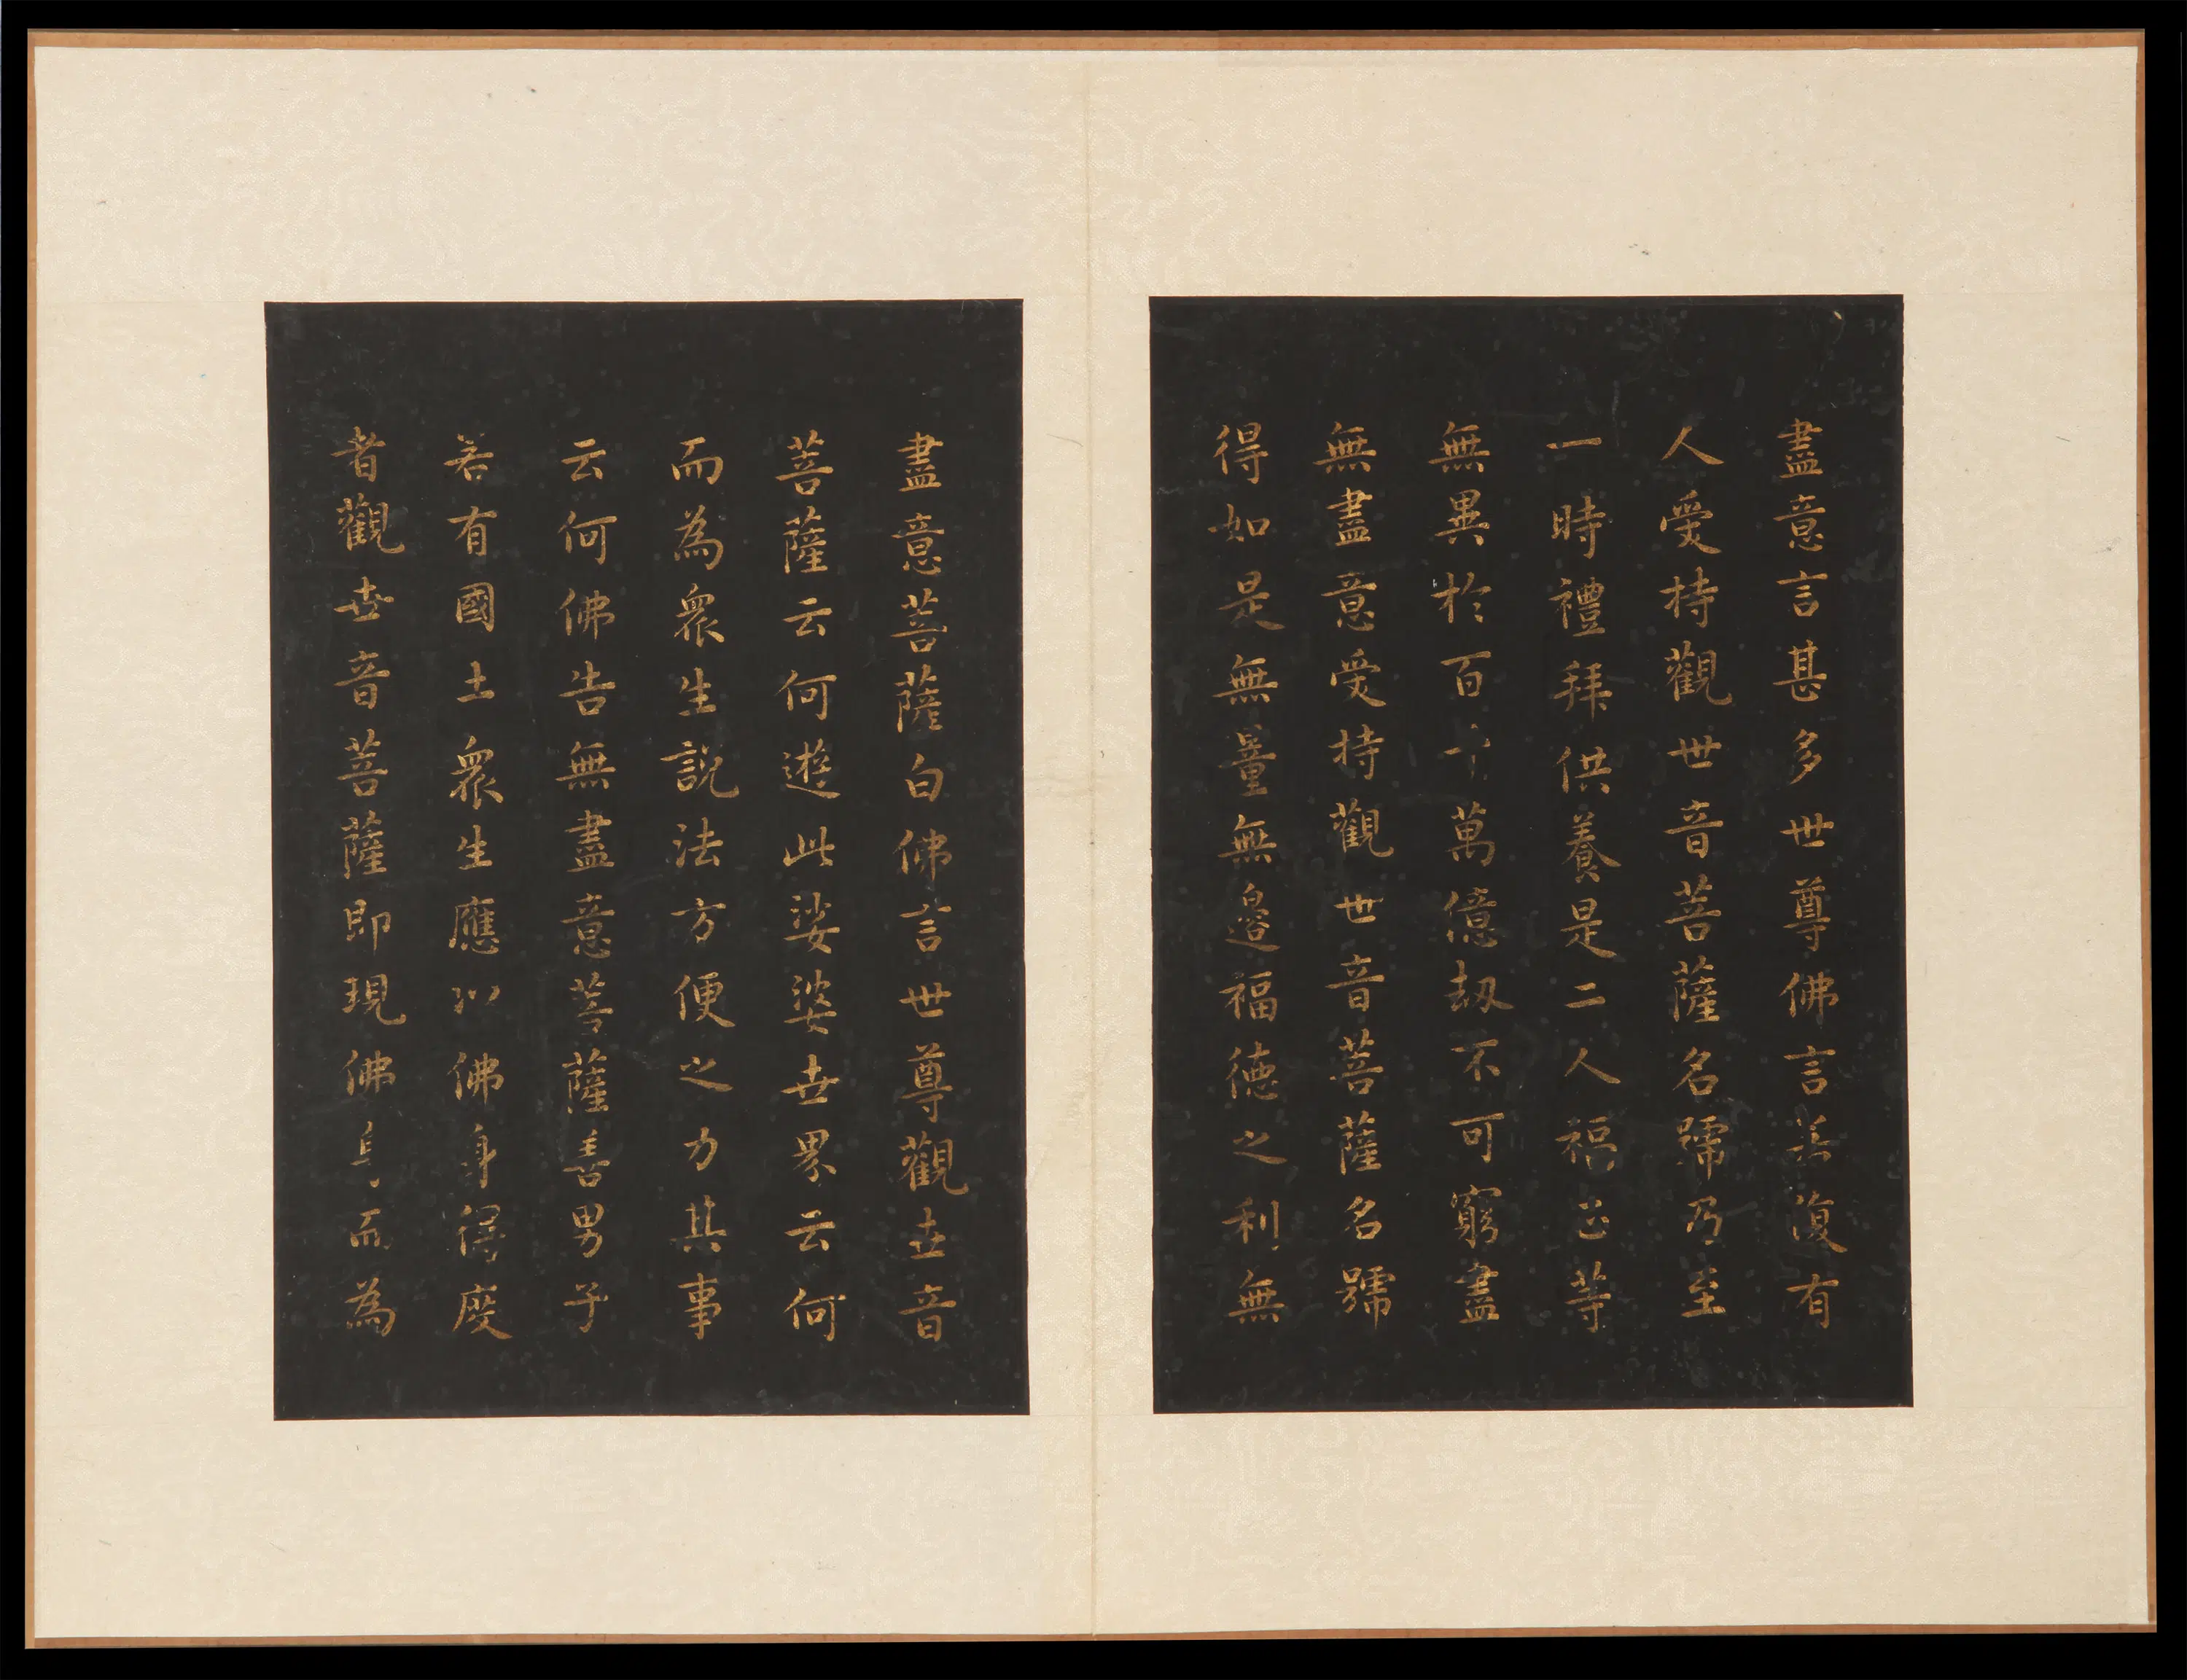 盡意言甚多世尊佛言若復有
人受持觀世音菩薩名號乃至
一時禮拜供養是二人福正等
無異於百千萬億劫不可窮盡
無盡意受持觀世音菩薩名號
得如是無量無邊福德之利無
盡意菩薩白佛言世尊觀世音
菩薩云何遊此娑婆世界云何
而為衆生說法方便之力其事
云何佛告無盡意菩薩善男子
若有國土衆生應以佛身得度
者觀世音菩薩即現佛身而為